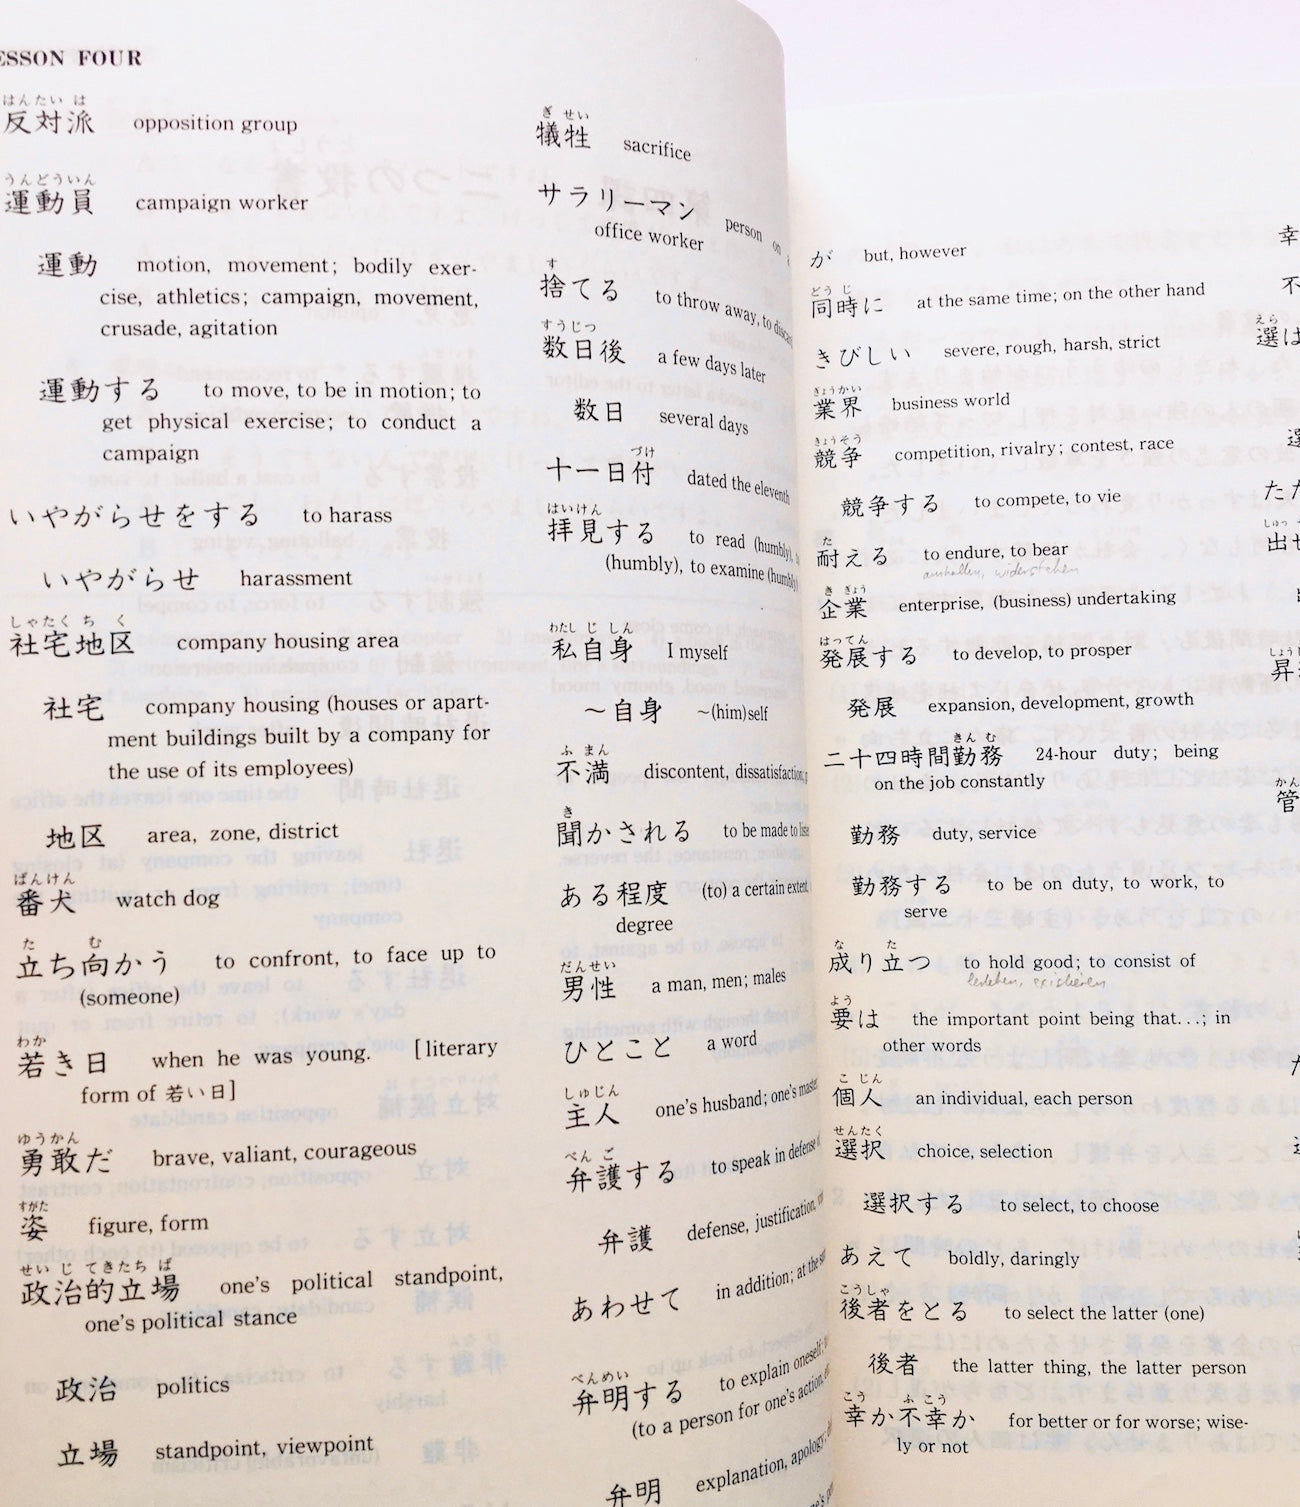 LESSON FOUR
はんたい は
反対派 opposition group
うんどういん
運動員 campaign worker
運動 motion, movement; bodily exer-
cise, athletics; campaign, movement,
crusade, agitation
運動する to move, to be in motion; to
get physical exercise; to conduct a
campaign
いやがらせをする to harass
いやがらせ harassment
しゃたく ち く
社宅地区 company housing area
社宅 company housing (houses or apart-
ment buildings built by a company for
the use of its employees)
地区 area, zone, district
ばんけん
番犬 watch dog
た む
立ち向かう to confront, to face up to
(someone)
わか
若き日 when he was young. [literary
form of 若い日]
ゆうかん
勇敢だ brave, valiant, courageous
すがた
姿 figure, form
せい じ てきたち ば
政治的立場 one's political standpoint,
one's political stance
政治 politics
立場 standpoint, viewpoint
ぎ せい
犠牲 sacrifice
サラリーマン person on
office worker
す
捨てる to throw away, to
すうじつ
数日後 a few days later
数日 several days
づけ
十一日付 dated the eleventh
はいけん
拝見する to read (humbly),
(humbly), to examine (humbly)
わたし じ しん
私自身 I myself
～自身 ~(him)self
ふ まん
不満 discontent, dissatisfaction;
き
聞かされる to be made to
ある程度 (to) a certain extent
degree
だんせい
男性 a man, men; males
ひとこと a word
しゅじん
主人 one's husband; one's
べん ご
弁護する to speak in defense
弁護 defense, justification,
あわせて in addition; at the
べんめい
弁明する to explain oneself;
(to a person for one's action,
弁明 explanation, apology;
が but, however
どう じ
同時に at the same time; on the other hand
きびしい severe, rough, harsh, strict
ぎょうかい
業界 business world
きょうそう
競争 competition, rivalry; contest, race
競争する to compete, to vie
た
耐える to endure, to bear
き ぎょう
企業 enterprise, (business) undertaking
はってん
発展する to develop, to prosper
発展 expansion, development, growth
きん む
二十四時間勤務 24-hour duty; being
on the job constantly
勤務 duty, service
勤務する to be on duty, to work, to
serve
な た
成り立つ to hold good; to consist of
よう
要は the important point being that...; in
other words
こ じん
個人 an individual, each person
せんたく
選択 choice, selection
選択する to select, to choose
あえて boldly, daringly
こうしゃ
後者をとる to select the latter (one)
後者 the latter thing, the latter person
こう ふ こう
幸か不幸か for better or for worse; wise-
ly or not
幸
不
えら
選ば